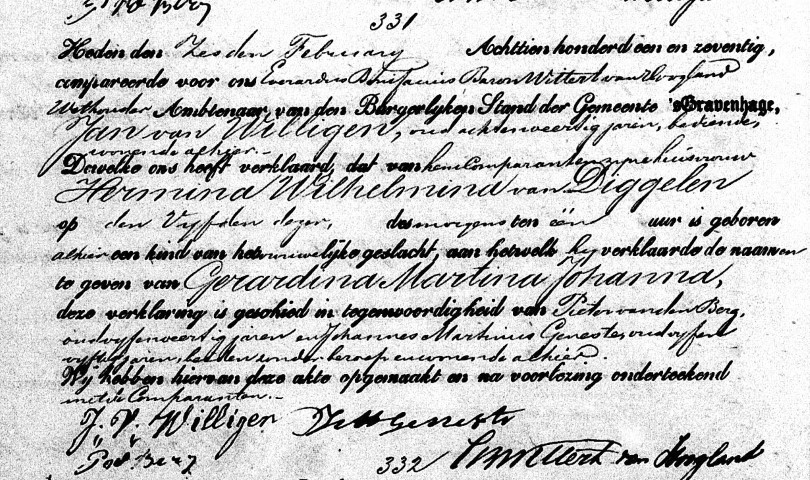 331
Heden den Zesden February Achttien honderd een en zeventig,
compareerde voor ons Everardus Bonifacius Baron Wittert van Hoogland
Wethouder Ambtenaar van den Burgerlyken Stand der Gemeente 's Gravenhage,
Jan van Willigen, oud achtenveertig jaren, bediende,
wonende alhier.-
Dewelke ons heeft verklaard, dat van hem Comparant en zyne huisvrouw
Hermina Wilhelmina van Diggelen
op den Vyfden dezer, des morgens ten één uur is geboren
alhier een kind van het vrouwelijke geslacht, aan hetwelk hy verklaarde de naamen
te geven van Gerardina Martina Johanna,
deze verklaring is geschied in tegenwoordigheid van Pieter van den Berg,
oud vyfenveertig jaren en Johannes Martinus Geneste, oud vyfen
vyftig jaren, beiden zonder beroep en wonende alhier.
Wij hebben hiervan deze akte opgemaakt en na voorlezing onderteekend
met de Comparanten.-
J. V. Willigen Geneste
Berg
332 Wittert van Hoogland